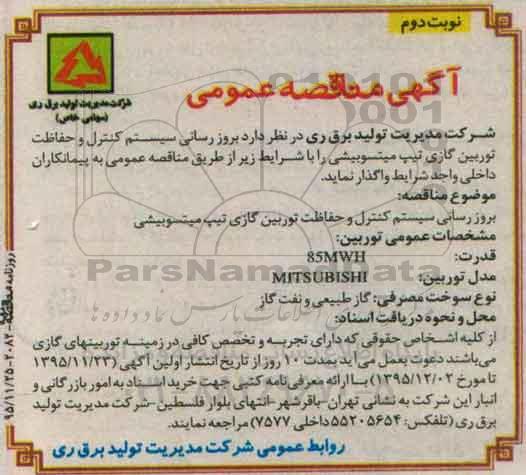 نوبت دوم
شرکت مدیریت تولید برق ری
(سهامی خاص)
آگهی مناقصه عمومی
شرکت مدیریت تولید برق ری در نظر دارد بروز رسانی سیستم کنترل و حفاظت
توربین گازی تیپ میتسوبیشی را با شرایط زیر از طریق مناقصه عمومی به پیمانکاران
داخلی واجد شرایط واگذار نماید.
موضوع مناقصه:
بروز رسانی سیستم کنترل و حفاظت توربین گازی تیپ میتسوبیشی
مشخصات عمومی توربین:
قدرت: 85MWH
مدل توربین: MITSUBISHI
نوع سوخت مصرفی: گاز طبیعی و نفت گاز
محل و نحوه دریافت اسناد:
از کلیه اشخاص حقوقی که دارای تجربه و تخصص کافی در زمینه توربینهای گازی
می‌باشند دعوت بعمل می آید بمدت ۱۰ روز از تاریخ انتشار اولین آگهی (۱۳۹۵/۱۱/۲۳
تا مورخ ۱۳۹۵/۱۲/۰۲) با ارائه معرفی نامه کتبی جهت خرید اسناد به امور بازرگانی و
انبار این شرکت به نشانی تهران-باقرشهر-انتهای بلوار فلسطین-شرکت مدیریت تولید
برق ری (تلفکس: ۵۵۲۰۵۶۵۴ داخلی ۷۵۷۷) مراجعه نمایند.
روابط عمومی شرکت مدیریت تولید برق ری
روزنامه مناقصه - ۲۰۸۲ - ۹۵/۱۱/۲۵
ParsNamadData